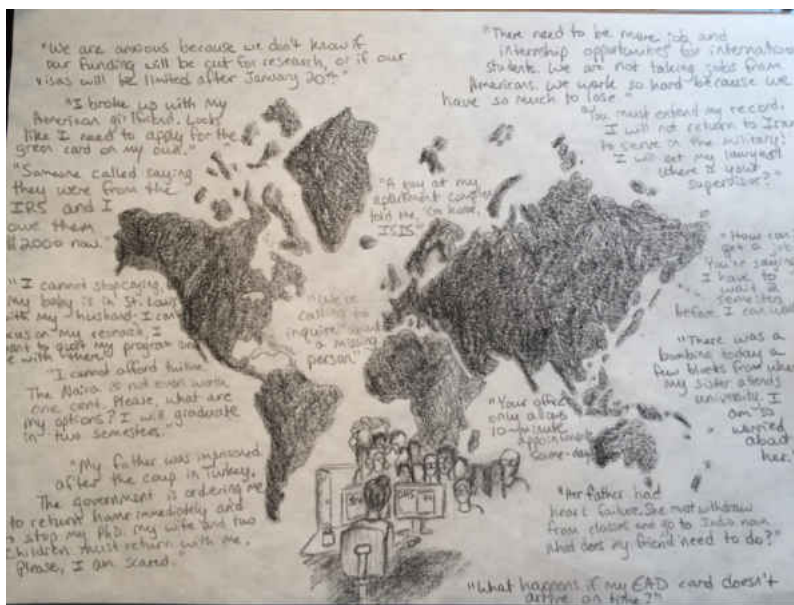 "We are anxious because we don't know if
our funding will be cut for research, or if our
visas will be limited after January 20th"
"I broke up with my
American girlfriend. Looks
like I need to apply for the
green card on my own."
"Someone called saying
they were from the
IRS and I
owe them
$2000 now."
"I cannot stop crying,
my baby is in St. Louis
with my husband. I can't
focus on my research, I
want to quit my program and
be with them."
"I cannot afford tuition.
The Naira is not even worth
one cent. Please, what are
my options? I will graduate
in two semesters."
"My father was imprisoned
after the coup in Turkey.
The government is ordering me
to return home immediately and
stop my PhD. My wife and two
children must return with me.
Please, I am scared.
"A guy at my
apartment complex
told me, 'Go home,
ISIS'"
"We're
calling to
inquire about
a missing
person"
"There need to be more job and
internship opportunities for internation
students. We are not taking jobs from
Americans. We work so hard because we
have so much to lose"
"You must extend my record.
I will not return to Iran
to serve in the military!
I will get my lawyer!
Where is your
supervisor?"
"How can I
get a job?
You're saying
I have to
wait a
semester
before I can work
"There was a
bombing today a
few blocks from where
my sister attends
university. I
am so
worried
about
her."
"Your office
only allows
10-minute
appointments
same-day
DHS
"Her father had
heart failure. She must withdraw
from classes and go to India now.
What does my friend need to do?"
"What happens if my EAD card doesn't
arrive on time?"